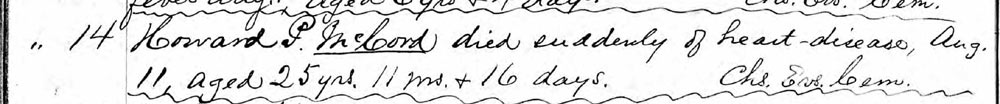 fever Aug. , aged 6 yrs & 4 days. Chs. Evs. Cem.
" 14 Howard P. McCord died suddenly of heart-disease, Aug.
11, aged 25 yrs. 11 ms. & 16 days. Chs. Evs. Cem.